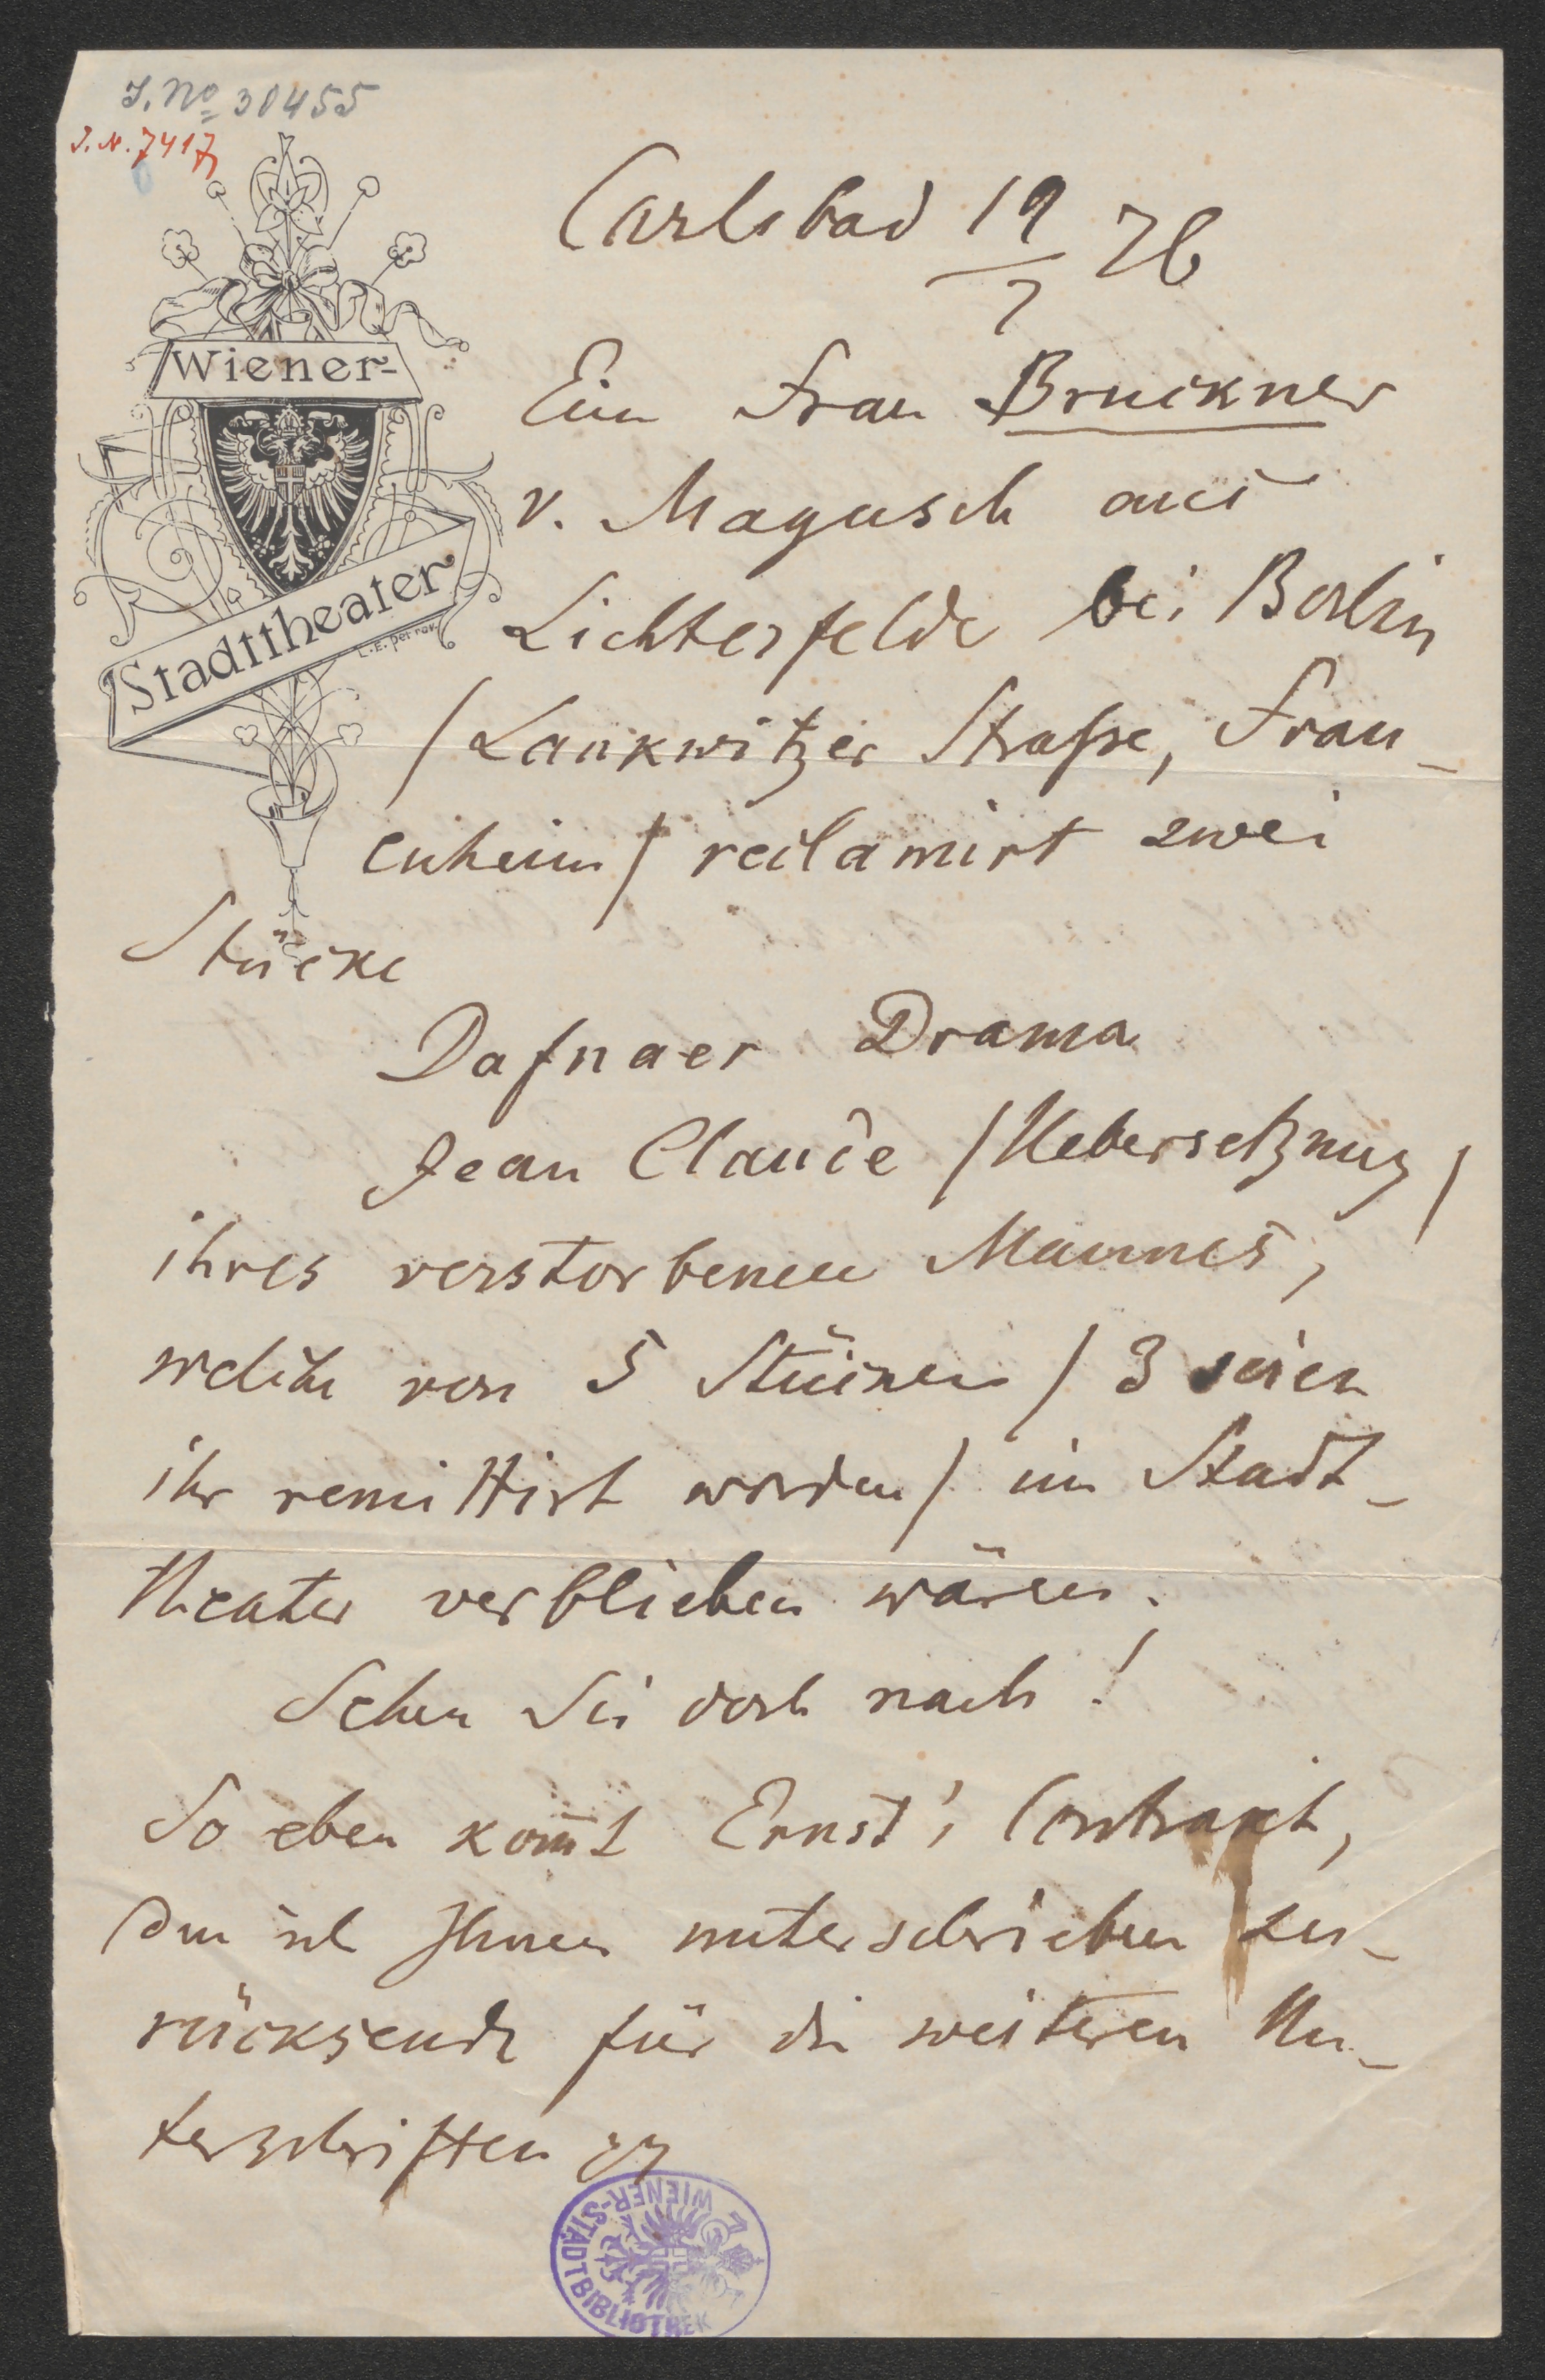 J. No 30455
J. N. 7417
Wiener-
Stadttheater
Carlsbad 19/7 76
Ein Frau Bruckner
v. Magusch aus
Lichterfelde bei Berlin
/Lankwitzer Strasse, Frau-
enheim/ reclamirt zwei
Stücke
Dafnaer Drama
Jean Claude /Uebersetzung/
ihres verstorbenen Mannes,
welche von 5 Stücken /3 seien
ihr remittirt worden/ im Stadt-
theater verblieben wären.
Sehen Sie doch nach!
So eben kom̄t Ernst's Contrakt,
den ich Ihnen unterschrieben zu-
rücksende für die weiteren Un-
terschriften
WIENER-STADTBIBLIOTHEK